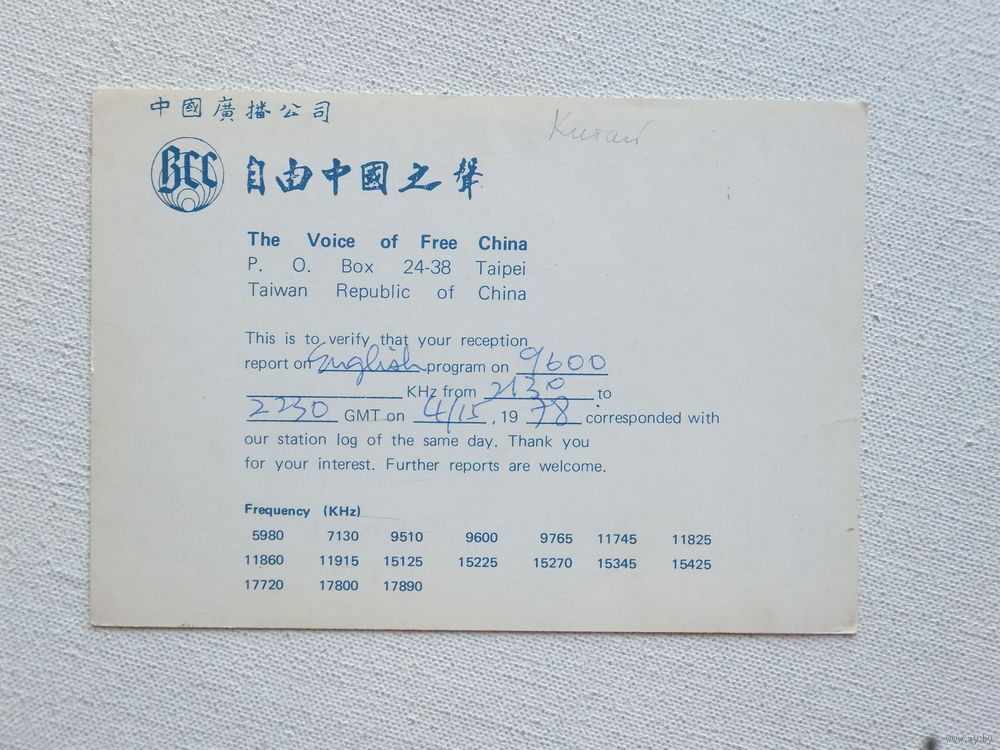 中國廣播公司
Китай
BCC
自由中國之聲
The Voice of Free China
P. O. Box 24-38 Taipei
Taiwan Republic of China
This is to verify that your reception
report on English program on 9600
KHz from 2130 to
2230 GMT on 4/15, 1978 corresponded with
our station log of the same day. Thank you
for your interest. Further reports are welcome.
Frequency (KHz)
5980 7130 9510 9600 9765 11745 11825
11860 11915 15125 15225 15270 15345 15425
17720 17800 17890
www.ay.by